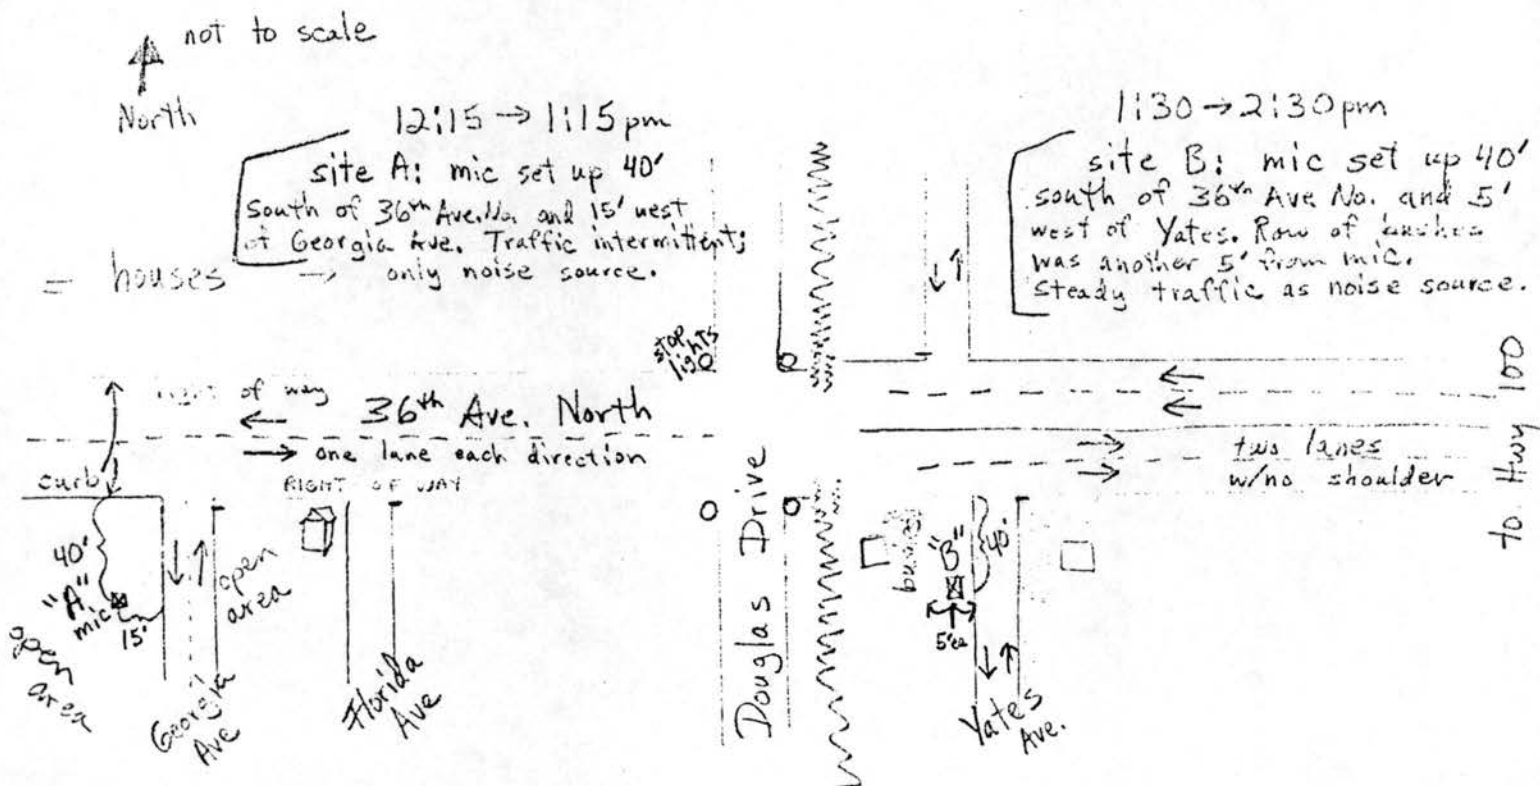 not to scale
North
12:15 → 1:15 pm
site A: mic set up 40'
South of 36th Ave. No. and 15' west
of Georgia Ave. Traffic intermittent;
→ only noise source.
= houses
1:30 → 2:30 pm
site B: mic set up 40'
south of 36th Ave No. and 5'
west of Yates. Row of bushes
was another 5' from mic.
Steady traffic as noise source.
STOP
lights
right of way
36th Ave. North
one lane each direction
RIGHT OF WAY
curb
40'
"A"
mic
15'
open
area
Georgia
Ave
open
area
Florida
Ave
Douglas Drive
bushes
"B"
40'
5'ea
Yates
Ave.
two lanes
w/no shoulder
to Hwy 100